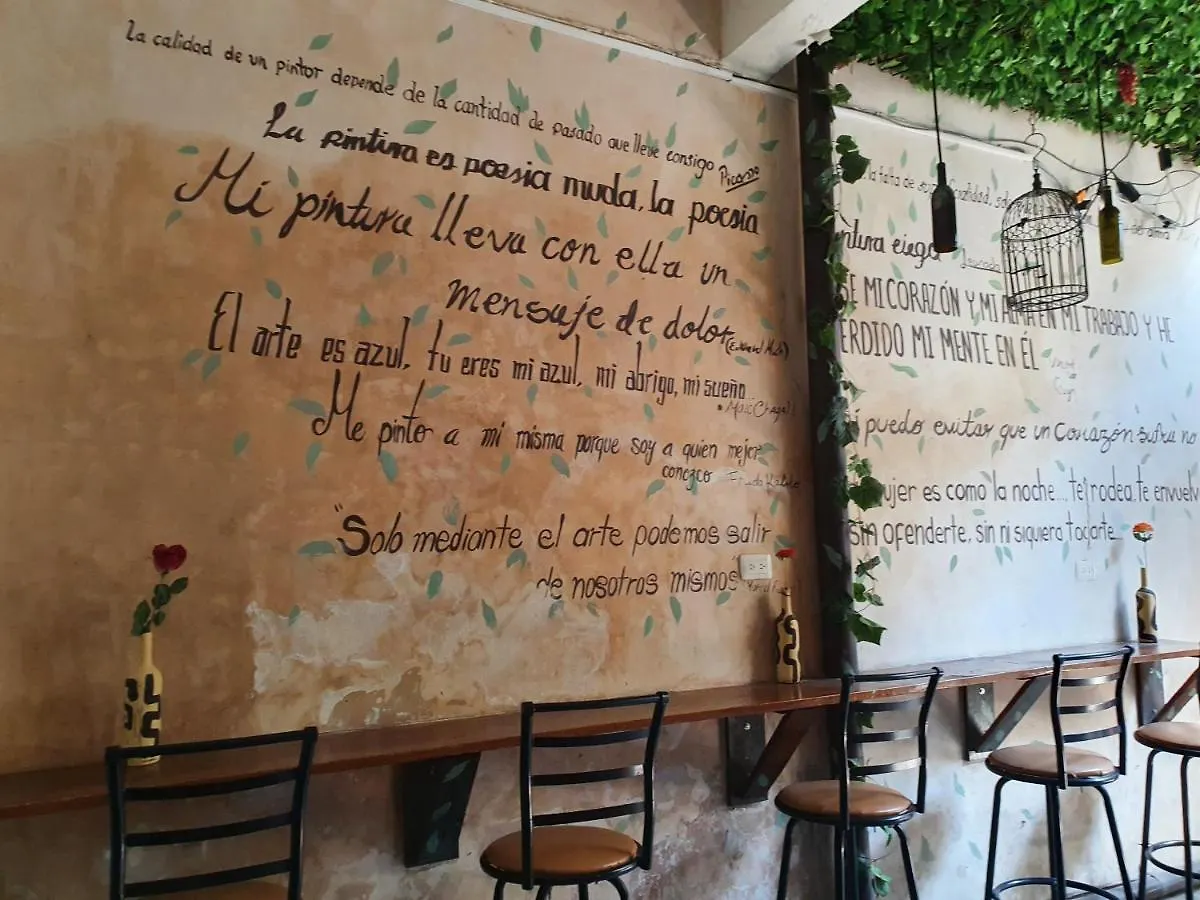 La calidad de un pintor depende de la cantidad de pasado que lleve consigo Picasso
La pintura es poesia muda, la poesia
Mi pintura lleva con ella un
mensaje de dolor (Edvard Munch)
El arte es azul, tu eres mi azul, mi abrigo, mi sueño...
Marc Chagall
Me pinto a mi misma porque soy a quien mejor
conozco Frida Kahlo
"Solo mediante el arte podemos salir
de nosotros mismos"
la falta de
ntura ciega Leonardo
SE MI CORAZÓN Y MI ALMA EN MI TRABAJO Y HE
ERDIDO MI MENTE EN ÉL
puedo evitar que un corazón sufra no
ujer es como la noche... te rodea, te envuelv
sin ofenderte, sin ni siquiera tocarte...